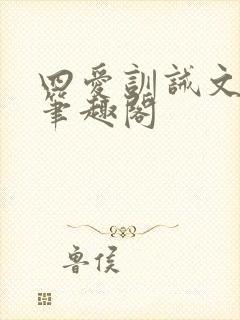 四爱訓誡文
筆趣閣
鲁侯